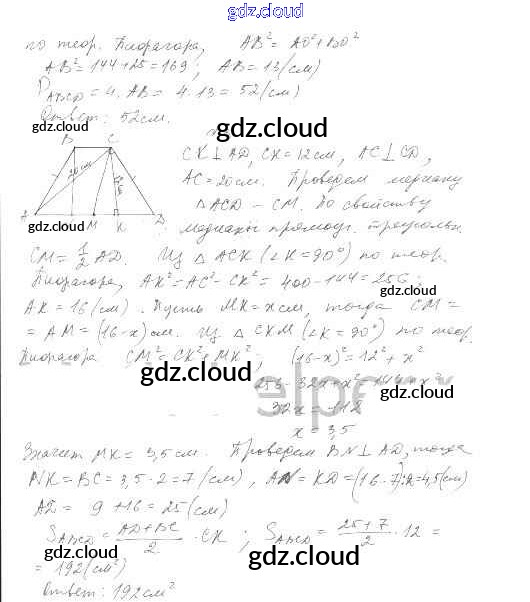 gdz.cloud
gdz.cloud
по теор. Пифагора, AB² = AO² + BO²
AB² = 144 + 25 = 169; AB = 13 (см)
P_ABCD = 4 · AB = 4 · 13 = 52 (см)
Ответ: 52 см.
gdz.cloud
gdz.cloud
B C
20 см
12 см
A M K D
gdz.cloud
CK ⊥ AD, CK = 12 см, AC ⊥ CD,
AC = 20 см. Проведем медиану
△ ACD – CM. По свойству
медианы прямоуг. треугольн.
CM = 1/2 AD. Из △ ACK (∠K = 90°) по теор.
Пифагора, AK² = AC² – CK² = 400 – 144 = 256;
gdz.cloud
AK = 16 (см). Пусть MK = x см, тогда CM =
= AM = (16 – x) см. Из △ CKM (∠K = 90°) по теор.
gdz.cloud
Пифагора CM² = CK² + MK²; (16 – x)² = 12² + x²
gdz.cloud
256 – 32x + x² = 144 + x²
32x = 112
x = 3,5
gdz.cloud
Значит MK = 3,5 см. Проведем BN ⊥ AD, тогда
NK = BC = 3,5 · 2 = 7 (см), AN = KD = (16 – 7) : 2 = 4,5 (см)
gdz.cloud
AD = 9 + 16 = 25 (см)
S_ABCD = (AD + BC)/2 · CK; S_ABCD = (25 + 7)/2 · 12 =
= 192 (см²)
gdz.cloud
gdz.cloud
Ответ: 192 см²